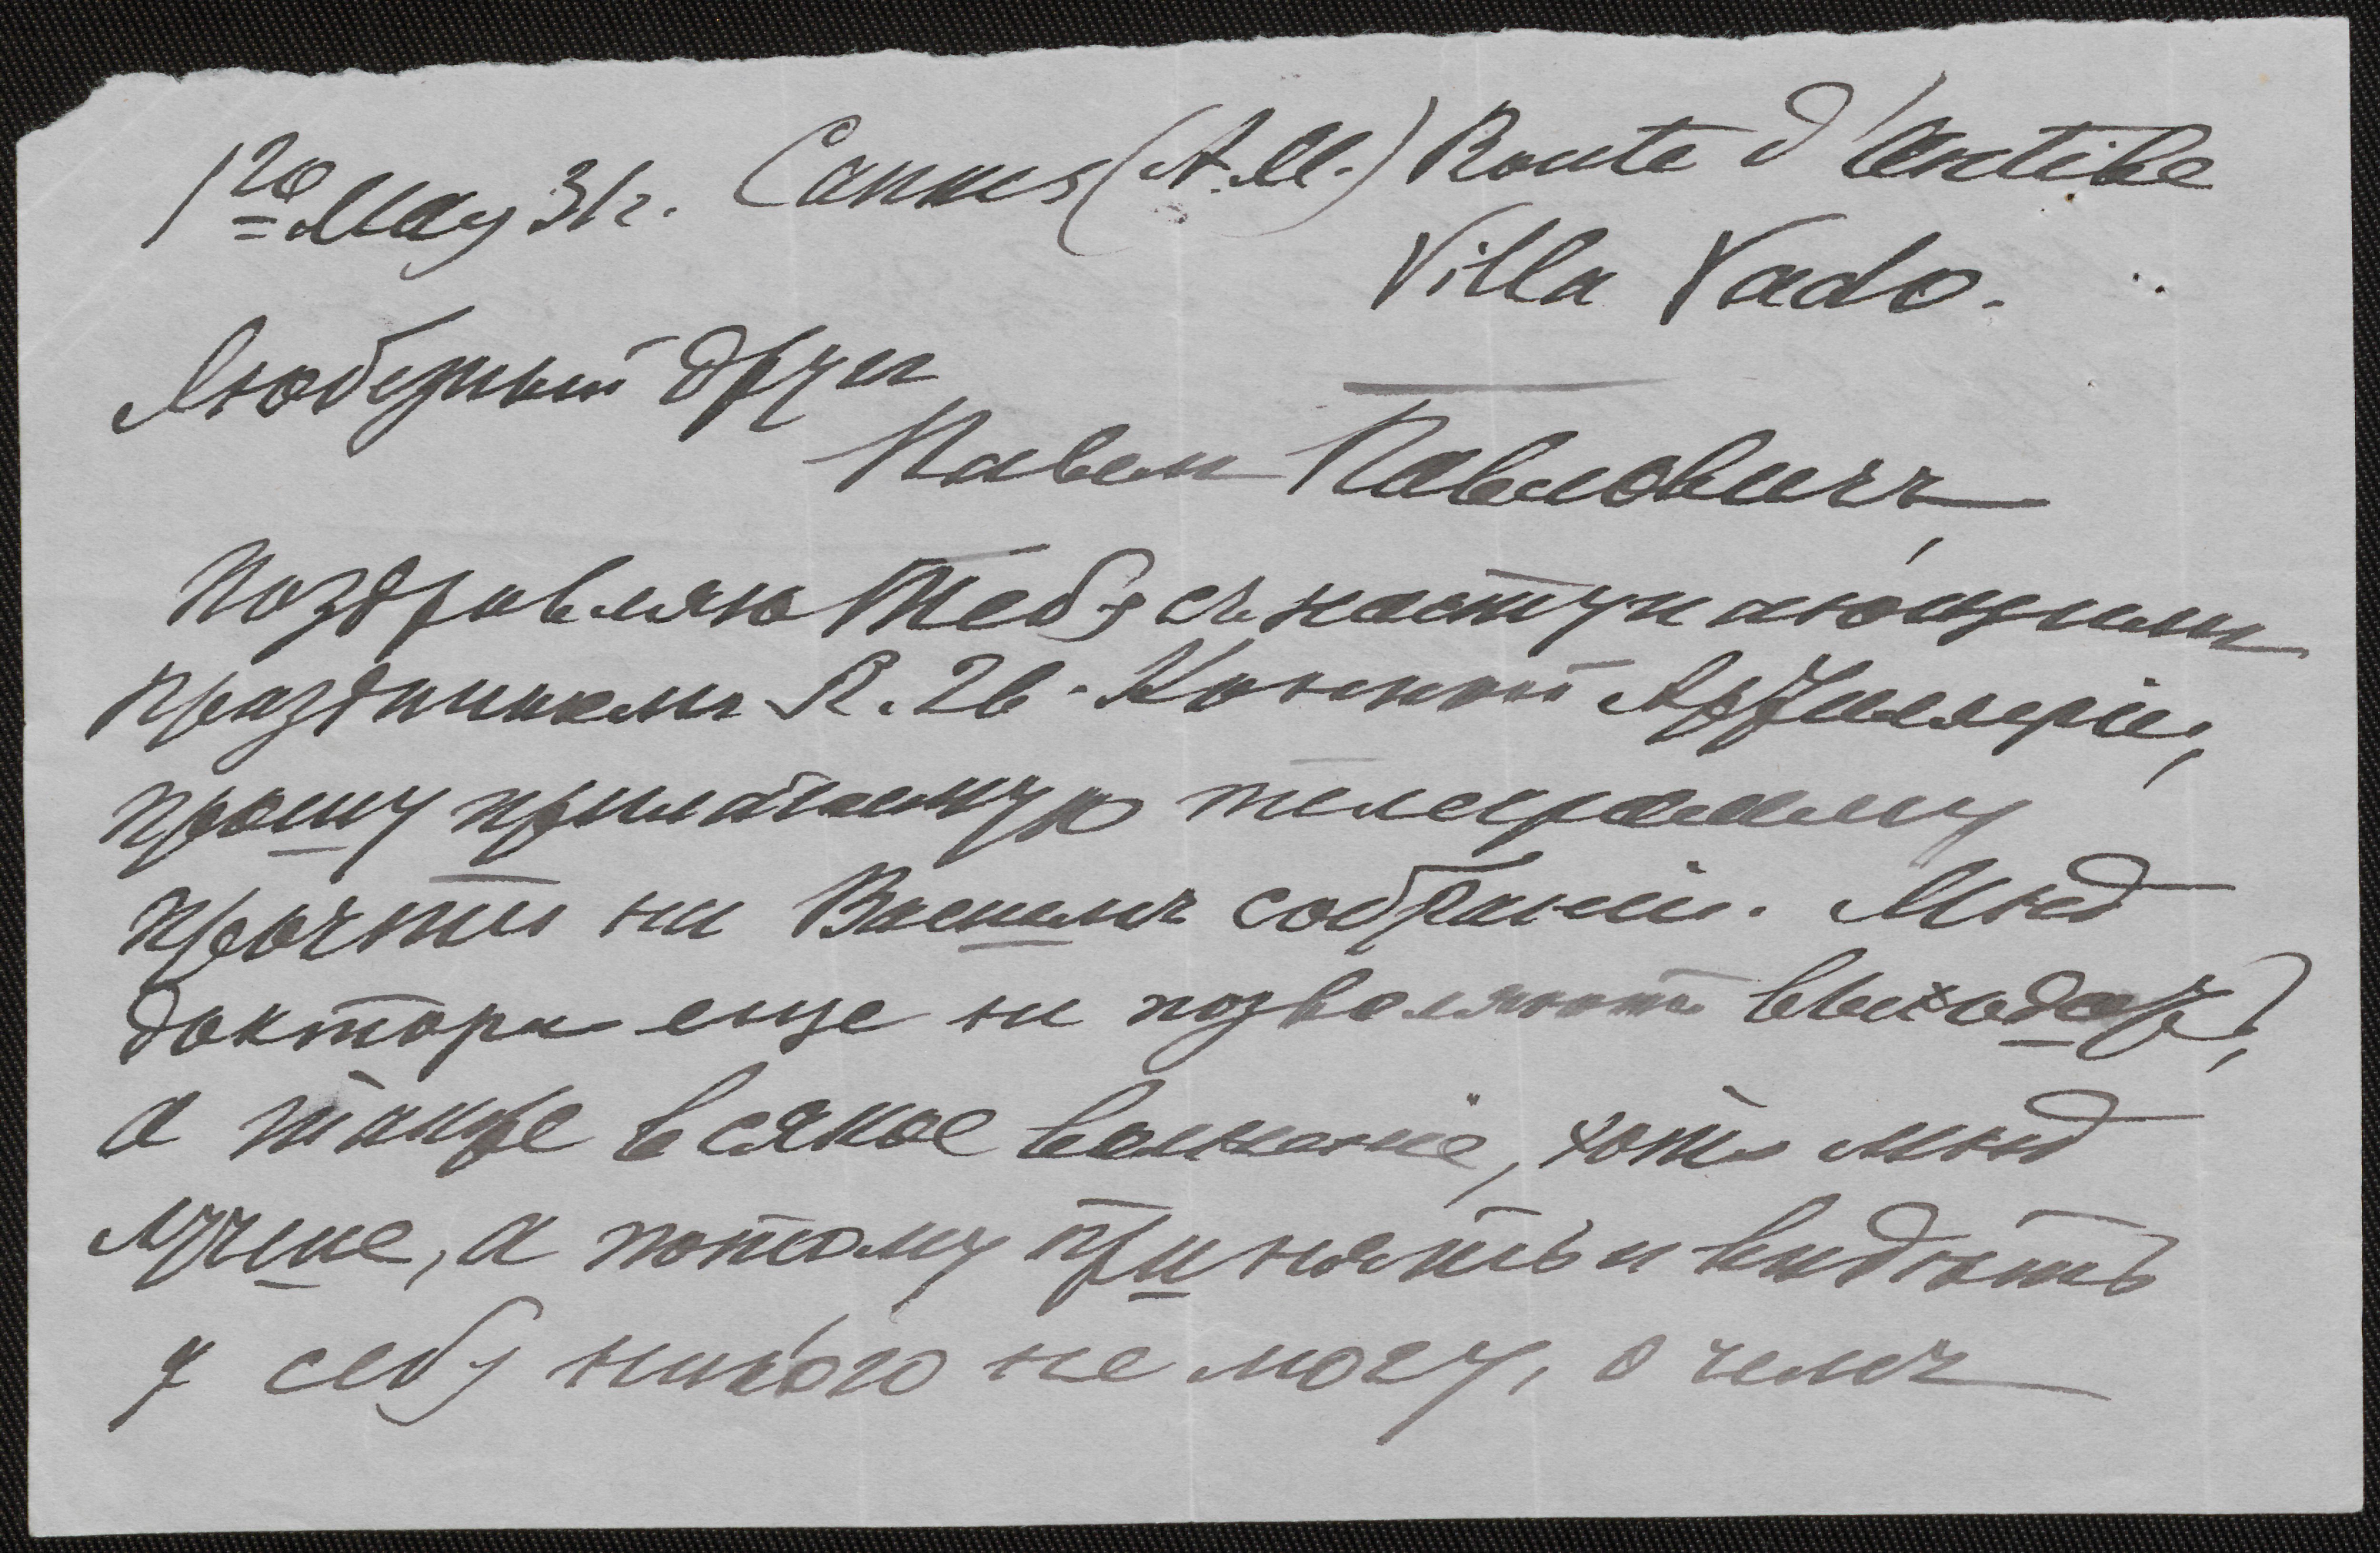 1го May 31г. Cannes (A.M.) Route d'Antibe
Villa Vado.
Любезный другъ
Павелъ Павловичъ,
поздравляю Тебя съ наступающимъ
праздникомъ Л. Гв. Конной Артиллеріи,
прошу прилагаемую телеграмму
прочти на Вашемъ собраніи. Мнѣ
доктора еще не позволяютъ выходить,
а также всякое волненіе, хотя мнѣ
лучше, а потому принять и видѣть
у себя никого не могу, о чемъ